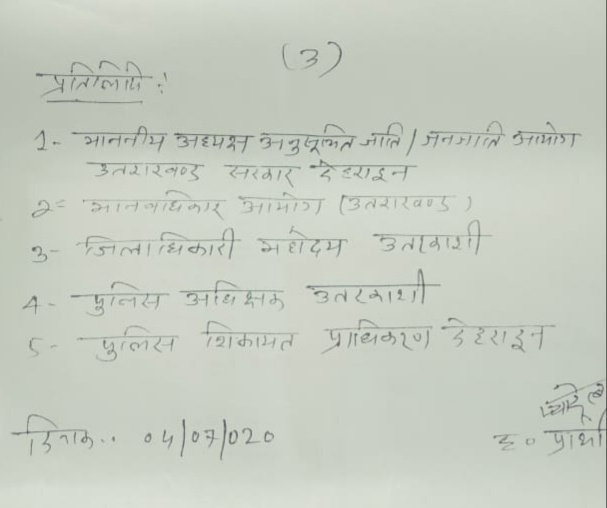 (3)
प्रतिलिपि :
1- माननीय अध्यक्ष अनुसूचित जाति / जनजाति आयोग
उतराखण्ड सरकार देहरादून
2= मानवधिकार आयोग (उतराखण्ड)
3- जिलाधिकारी महोदय उतरकाशी
4- पुलिस अधिक्षक उतरकाशी
5- पुलिस शिकायत प्राधिकरण देहरादून
दिनांक.. 04/07/020
ह० प्रार्थी